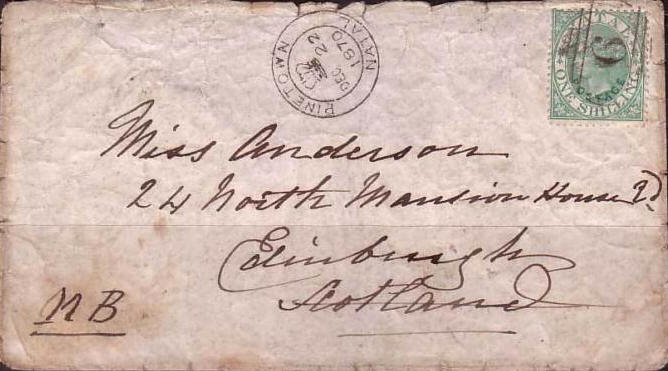 PINETOWN
DEC 22
1870
NATAL
NATAL
POSTAGE
ONE SHILLING
6
Miss Anderson
24 North Mansion House Rd
Edinburgh
Scotland
NB